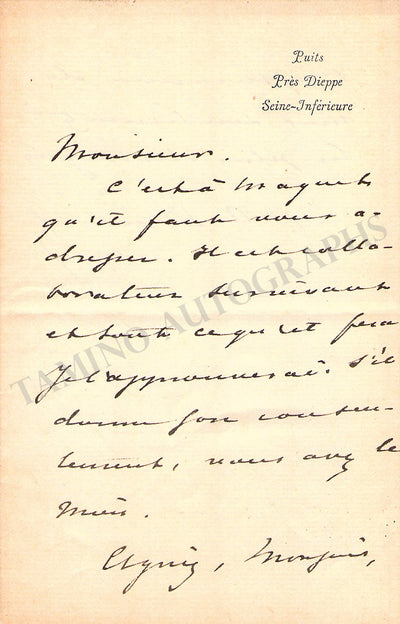 Puits
Près Dieppe
Seine-Inférieure
Monsieur.
C'est à Maquet
qu'il faut vous a-
dresser. Il est colla-
borateur survivant
et tout ce qu'il fera
Je l'approuverai. S'il
donne son consen-
tement, vous avez le
mien.
Agréez, Monsieur,
TAMINO AUTOGRAPHS